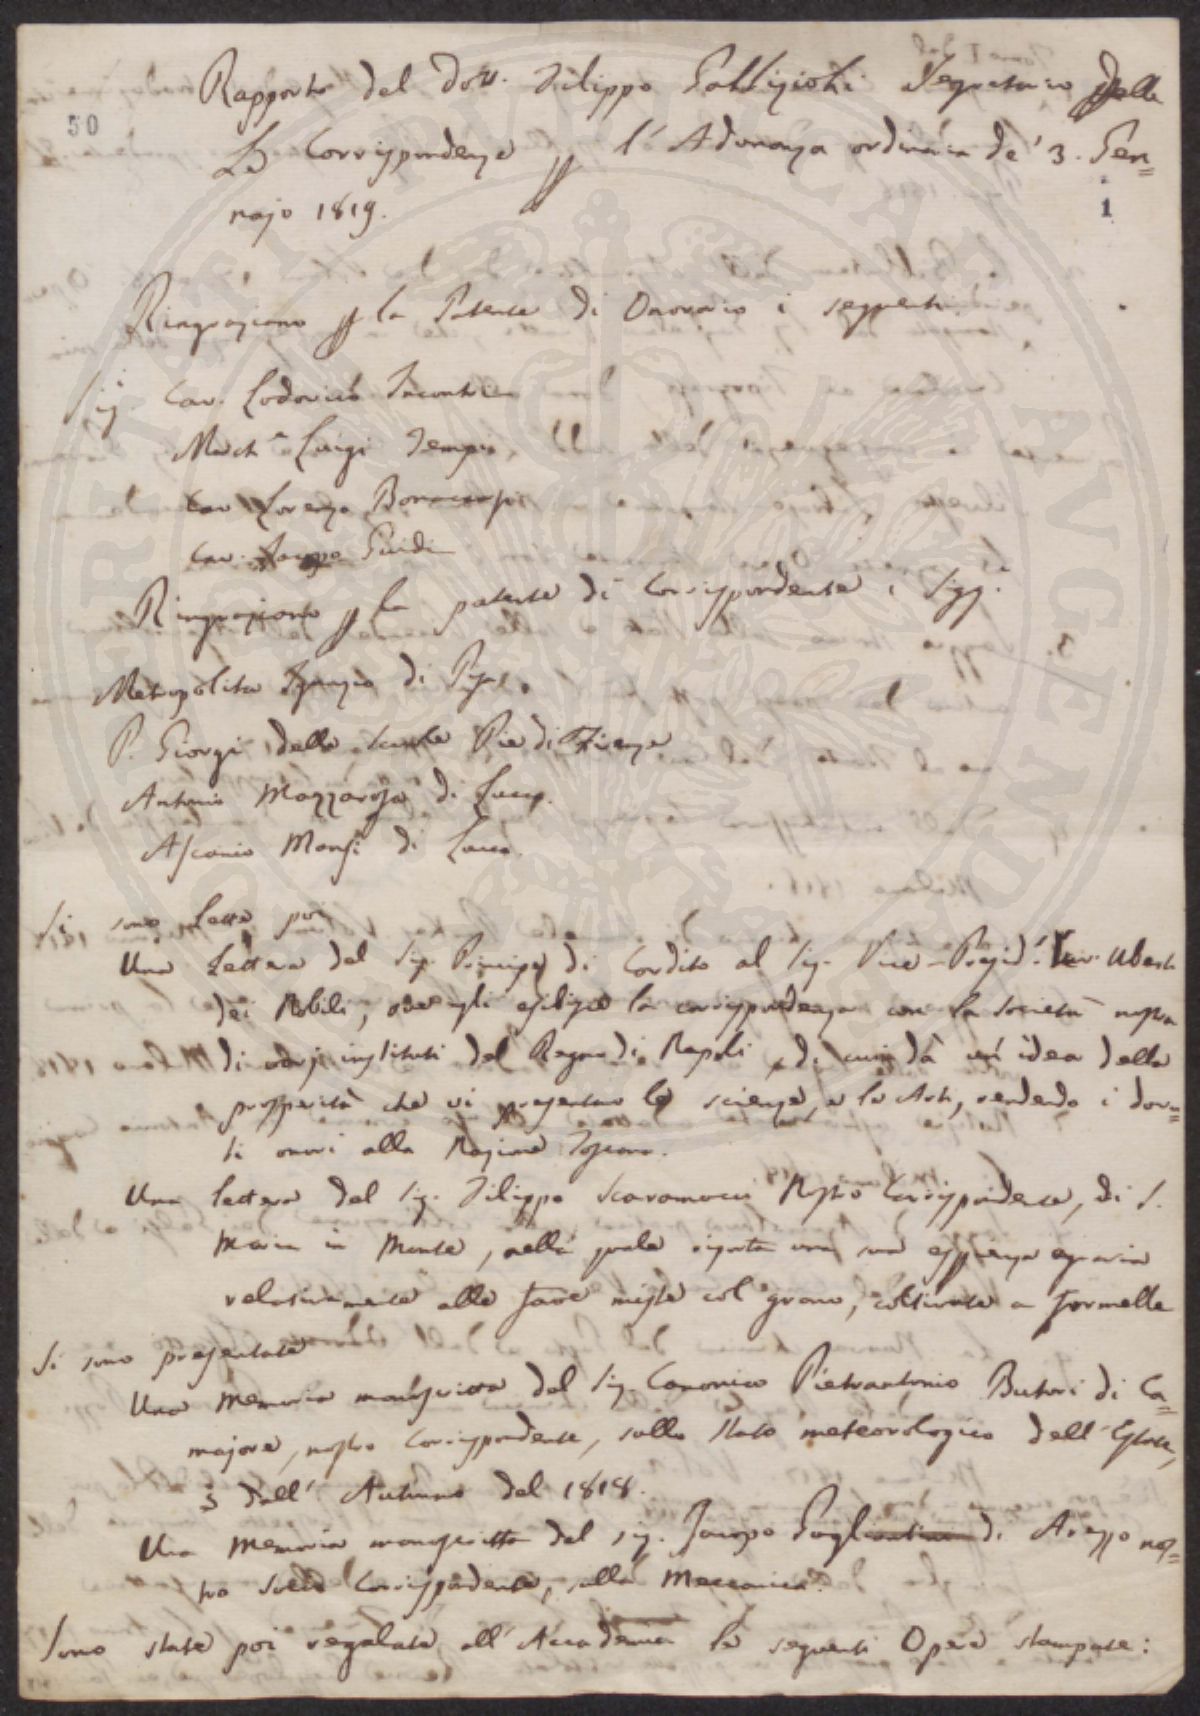 Rapporto del Dott. Filippo Gallizioli Segretario delle
50
Corrispondenze per l'Adunanza ordinaria de' 3. Gen=
najo 1819.
1
Ringraziano per la Patente di Onorario i seguenti
Sig. Cav. Lodovico
March. Luigi Tempi
Cav. Lorenzo
Cav. Jacopo Guidi
Ringraziano per la patente di Corrispondente i Sigg.
Metropolita Ignazio di
P. Giorgi delle Scuole Pie di Firenze
Antonio Mazzarosa di Lucca.
Ascanio Mansi di Lucca.
Si sono lette poi
Una Lettera del Sig. Principe di Cardito al Sig. Vice-Presid. Cav. Uberto
dei Nobili, ove egli esibisce la corrispondenza con la Società nostra
di varj instituti del Regno di Napoli, di cui dà un'idea della
prosperità che vi presentano le scienze, e le Arti, rendendo i dovu=
ti onori alla Nazione Toscana.
Una lettera del Sig. Filippo Scaramucci Nostro Corrispondente, di S.
Maria in Monte, nella quale riporta una sua esperienza agraria
relativamente alle fave miste col grano, coltivate a formelle
Si sono presentate
Una Memoria manoscritta del Sig. Canonico Pietrantonio Butori di Ca=
majore, nostro Corrispondente, sullo stato meteorologico dell'Estate,
e dell'Autunno del 1818.
Una Memoria manoscritta del Sig. Jacopo di Arezzo nos=
tro Socio Corrispondente, sulla Meccanica.
Sono state poi regalate all'Accademia le seguenti Opere stampate: